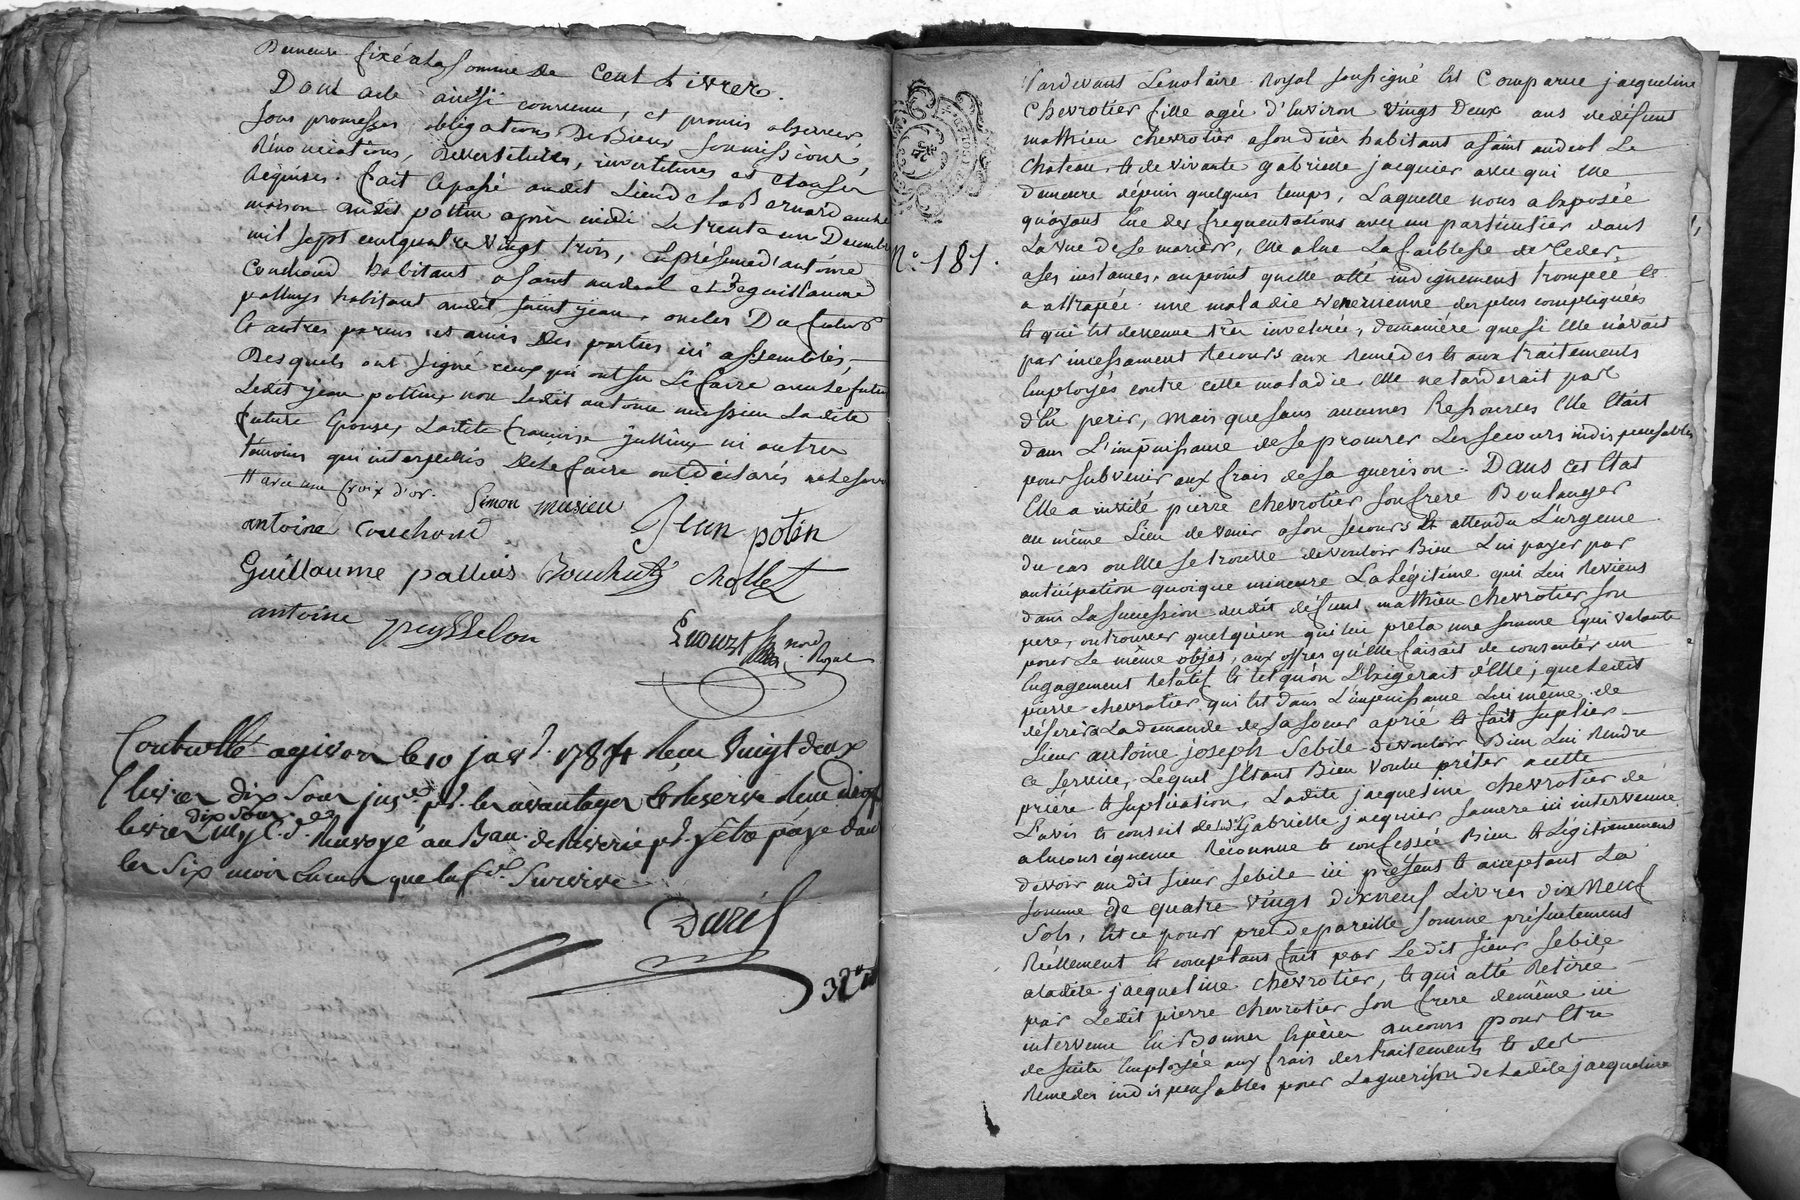 Demeure fixé a la somme de Cent Livres.
Dont acte ainssi convenu, et promis observer,
sous promesses obligations De Biens soumissions,
Rénonciations, investitures et Clauses
Requises. fait & passé audit Lieu de la Bernardanche
maison dudit pottin après midi Le trente un Decembre
mil sept cent quatre vingt trois, En présence d'antoine
Couchoud habitant a saint andeol et De guillaume
palluys habitant audit saint jean, oncles Du futur
& autres parens et amis Des parties ici assemblés,
Desquels ont signé ceux qui ont su Le faire avec Le futur
Ledit jean pottin, non Ledit antoine mussieu Ladite
future Epouse, Ladite francoise jullin, ni autres
temoins qui interpellés De Le faire ont déclarés ne Le savoir
# avec une Croix d'or.
Simon musieu
antoine Couchoud Jean potin
Guillaume pallius Bouchut Chollet
antoine peysselon
nore Royal
Controllé a givors le 10 janv.r 1784 Reçu Vingt deux
Livres dix sous jus.e pr. les avantages & Reserve Reçu dix
dix sous
livres Renvoyé au Bau. de Riverie pr. y être payé dans
les six mois en cas que la f.e Survive
Daril
32
N.o 181.
Pardevant Le notaire Royal soussigné Est Comparue jacqueline
Chevrotier fille agée d'Environ vingt Deux ans de défunt
mathieu chevrotier a son d'uer habitant a saint andeol Le
Chateau, & de vivante gabrielle jacquier avec qui elle
Demeure dépuis quelques temps, Laquelle nous a Exposée
qu'ayant Eue des frequentations avec un particulier dans
La vue de se marier, elle a Eue La faiblesse de Ceder
a ses instances, au point qu'elle a été indignement trompée &
a attrapée une maladie venerienne des plus compliquées
& qui Est devenue très inveterée, demanière que si elle n'avait
pas incessament Recours aux Remèdes & aux traitements
Employés contre cette maladie, elle ne tarderait pas
d'En perir, mais que sans aucunes Ressources elle Etait
dans L'impuissance de se procurer Les secours indispensables
pour subvenir aux frais de sa guerison. Dans cet Etat
elle a invité pierre chevrotier son frere Boulanger
au même Lieu de venir a son secours & attendu L'urgence
du cas ou elle se trouve de vouloir Bien Lui payer par
anticipation quoique mineure La Légitime qui Lui Reviens
dans La succession dudit défunt mathieu Chevrotier son
pere, ou trouver quelqu'un qui lui preta une somme Equivalante
pour Le même objet, aux offres qu'elle faisait de consentir un
Engagement Relatif & tel qu'on L'Exigerait d'elle; que Ledit
pierre chevrotier qui Est dans L'impuissance Lui même de
déferer a La demande de sa soeur a prié & fait suplier
Sieur antoine joseph Sebile de vouloir Bien Lui Rendre
ce service, Lequel s'Etant Bien voulu prêter a cette
prière & suplication, Ladite jacqueline chevrotier de
L'avis & conseil de lad. Gabrielle jacquier sa mere ici intervenue
a En conséquence Réconnue & confessée Bien & Légitimement
devoir audit sieur sebile ici présent & acceptant La
somme de quatre vingts dixneuf Livres dix neuf
sols, Et ce pour pret de pareille somme présentement
Réellement & comptant fait par Ledit sieur sebile
a ladite jacqueline chevrotier, & qui a été Retirée
par Ledit pierre chevrotier son frere demême ici
intervenu En Bonnes Espèces aucours pour Etre
de suite Employée aux frais des traitements & des
Remedes indispensables pour La guerison de Ladite jacqueline